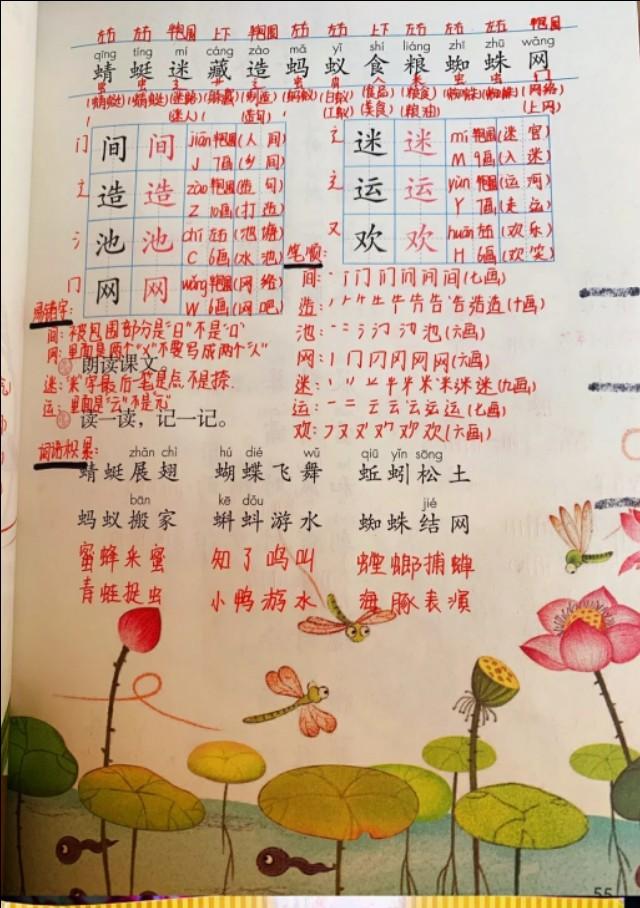 左右 左右 半包围 上下 半包围 左右 左右 上下 左右 左右 左右 半包围
qīng tíng mí cáng zào mǎ yǐ shí liáng zhī zhū wǎng
蜻 蜓 迷 藏 造 蚂 蚁 食 粮 蜘 蛛 网
虫 虫 辶 艹 辶 虫 虫 食 米 虫 虫 冂
(蜻蜓) (蜻蜓) (迷路) (捉藏) (制造) (蚂蚁) (白蚁) (食品) (粮食) (蜘蛛) (蜘蛛) (网络)
(迷人) (造句) (工蚁) (美食) (粮油) (上网)
门 间 间 jiān 半包围 (人间)
J 7画 (乡间)
辶 造 造 zào 半包围 (造句)
Z 10画 (打造)
氵 池 池 chí 左右 (池塘)
C 6画 (水池)
冂 网 网 wǎng 半包围 (网络)
W 6画 (网吧)
辶 迷 迷 mí 半包围 (迷宫)
M 9画 (入迷)
辶 运 运 yùn 半包围 (运河)
Y 7画 (走运)
又 欢 欢 huān 左右 (欢乐)
H 6画 (欢笑)
易错字:
间: 被包围部分是"日"不是"口"
网: 里面是两个"乂"不要写成两个"人"
朗读课文。
迷: "米"字最后一笔是点,不是捺.
运: 里面是"云"不是"元"
读一读，记一记。
笔顺:
间: 丶 丨 门 门 间 间 间 (七画)
造: 告 告 造 造 (十画)
池: 丶 丶 氵 池 (六画)
网: 丨 冂 冈 网 网 (六画)
迷: 丶 米 米 迷 迷 (九画)
运: 一 二 云 云 运 运 (七画)
欢: フ 又 欢 欢 (六画)
词语积累:
zhǎn chì hú dié wǔ qiū yǐn sōng
蜻蜓展翅 蝴蝶飞舞 蚯蚓松土
bān kē dǒu jié
蚂蚁搬家 蝌蚪游水 蜘蛛结网
蜜蜂采蜜 知了鸣叫 螳螂捕蝉
青蛙捉虫 小鸭游水 海豚表演
55